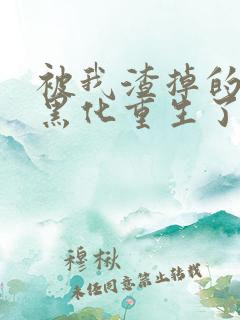 被我渣掉的
黑化重生了
穆楸
未经同意禁止转载